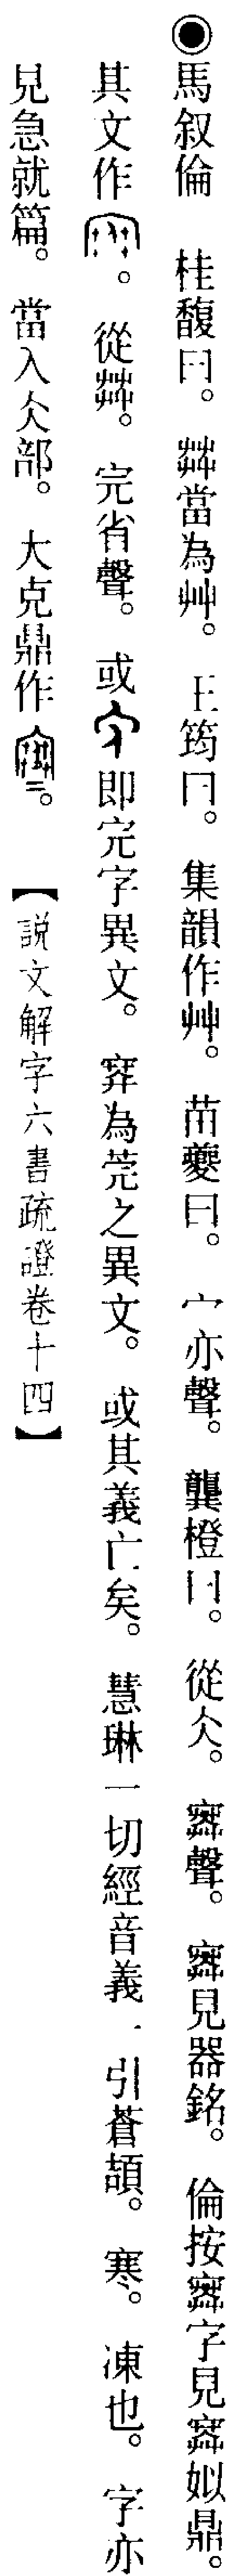 ◉馬叙倫　桂馥曰。茻當為艸。王筠曰。集韻作艸。苗夔曰。宀亦聲。龔橙曰。從仌。𡫳聲。𡫳見器銘。倫按𡫳字見𡫳姒鼎。
其文作。從茻。完省聲。或即完字異文。𡨄為莞之異文。或其義亡矣。慧琳一切經音義一引蒼頡。寒。凍也。字亦
見急就篇。當入仌部。大克鼎作。【說文解字六書疏證卷十四】